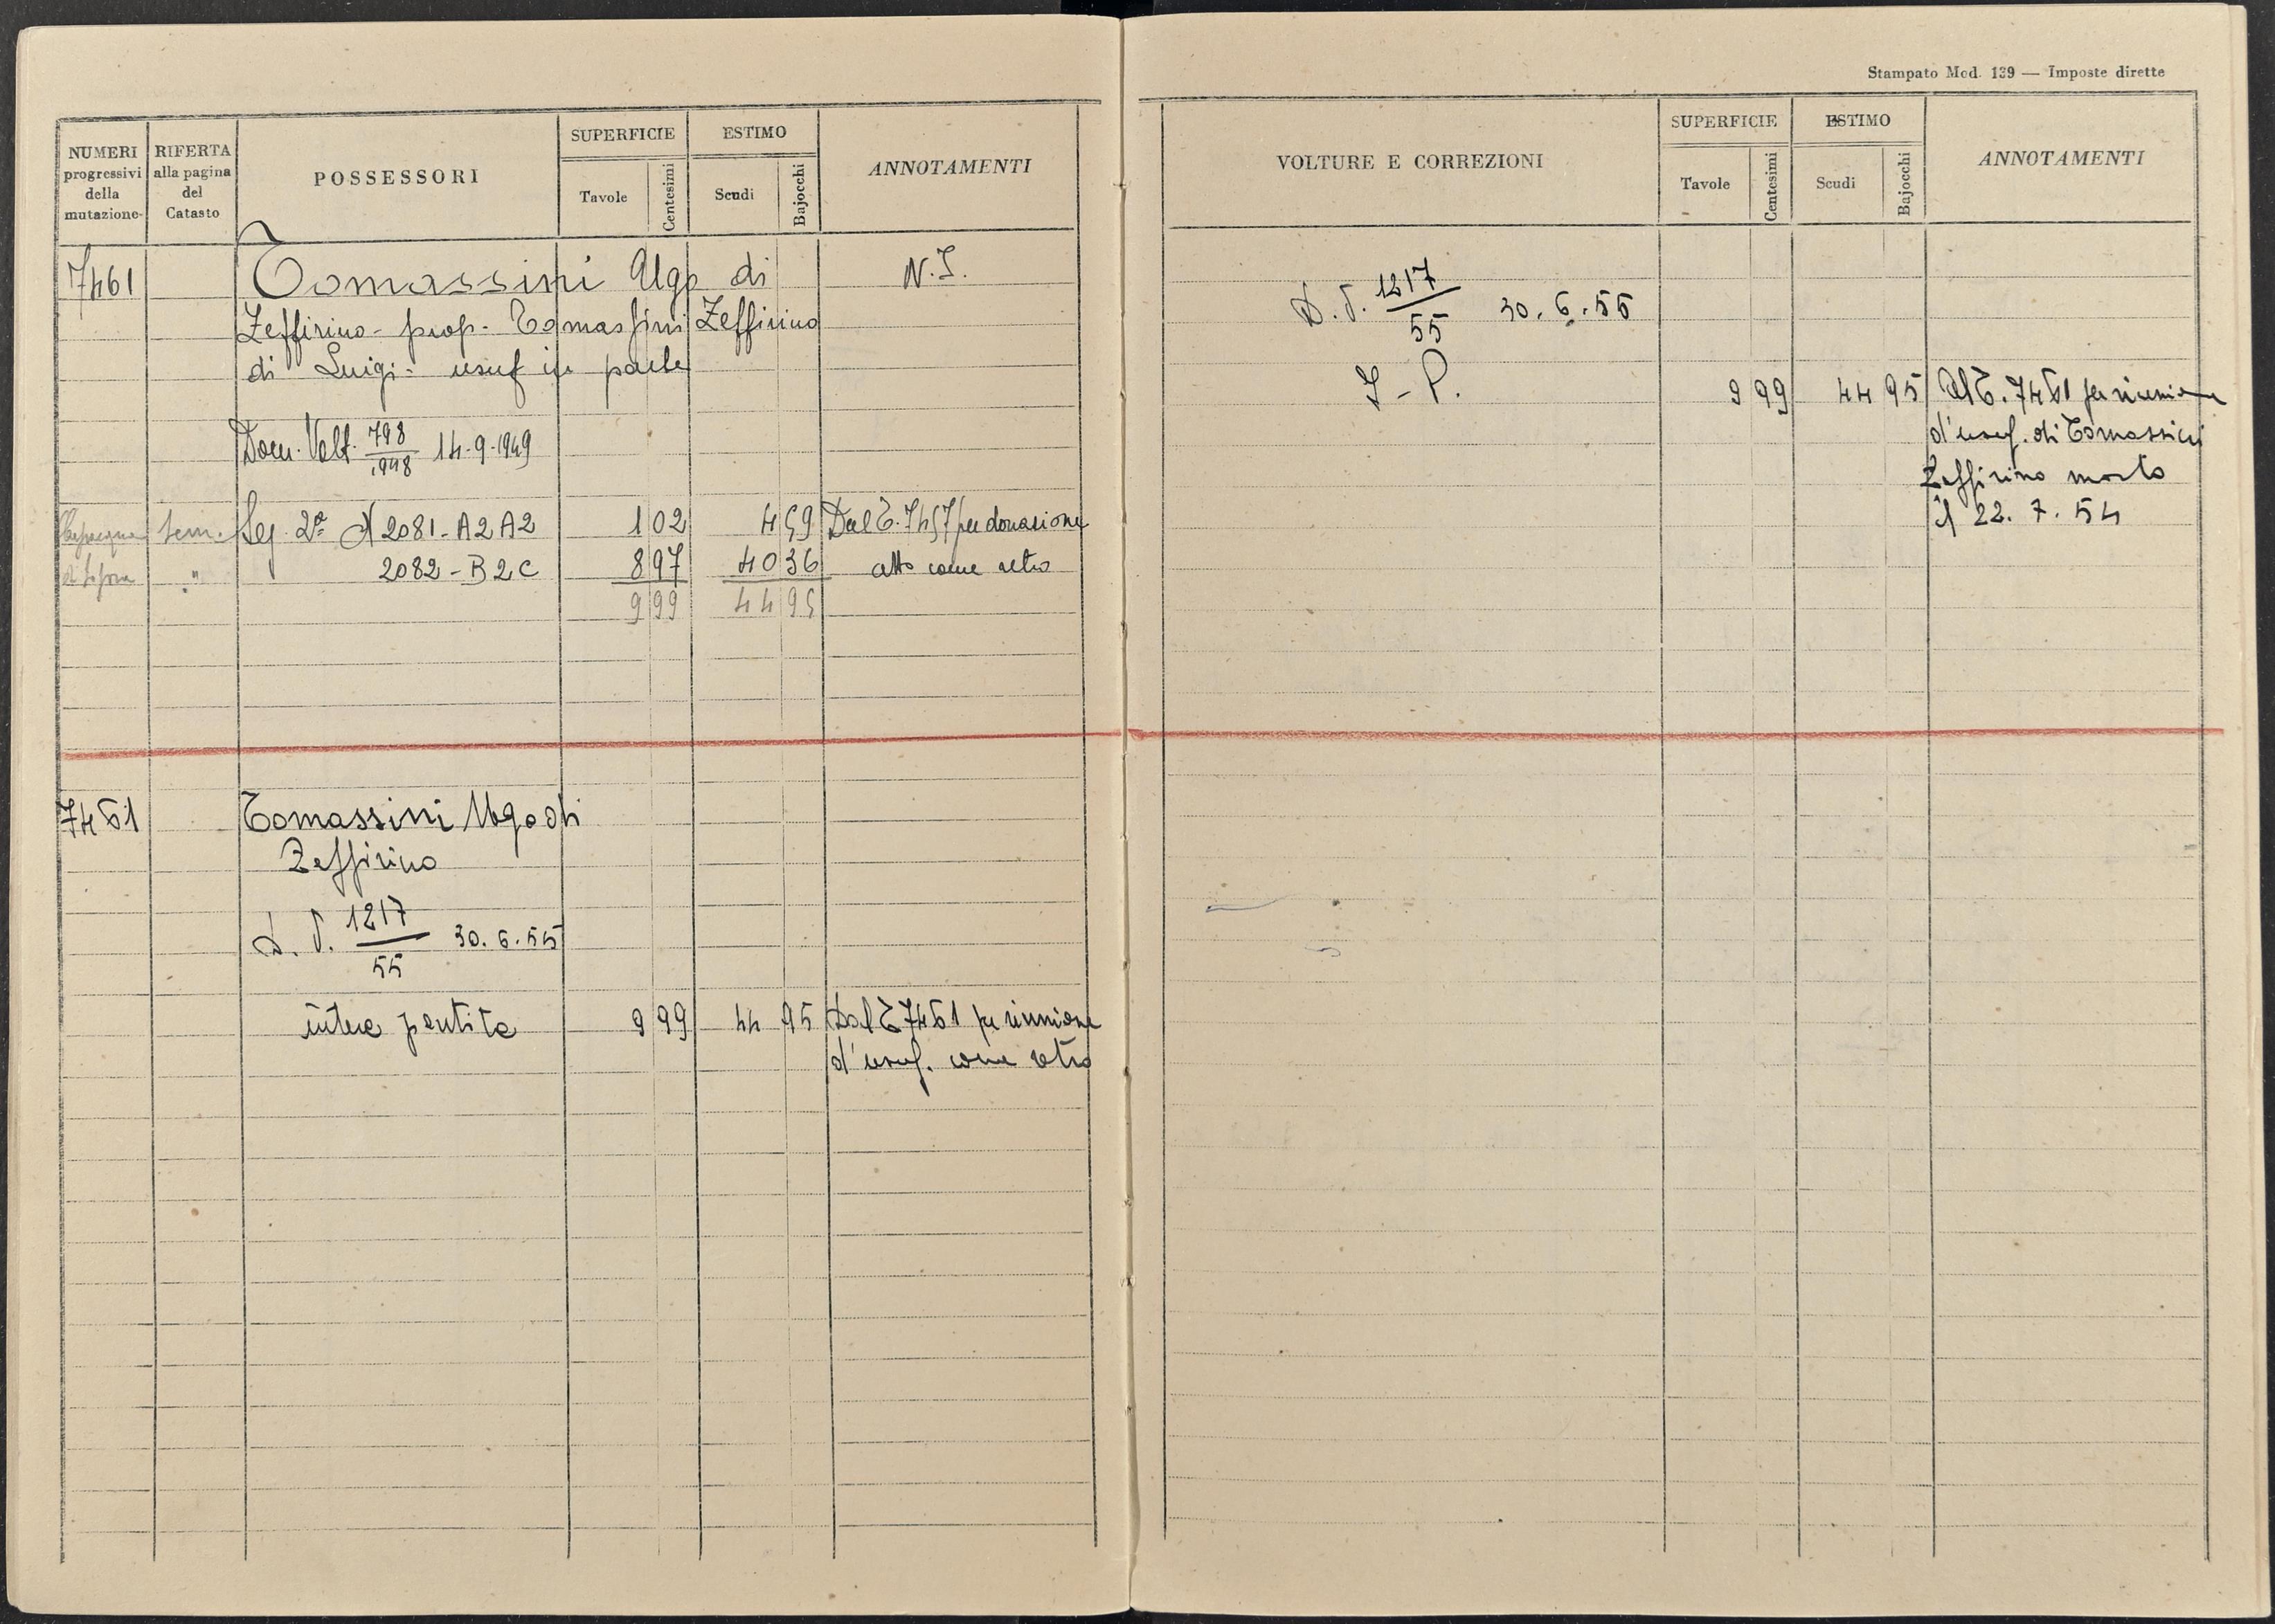 Stampato Mod. 139 — Imposte dirette
NUMERI progressivi della mutazione
RIFERTA alla pagina del Catasto
POSSESSORI
SUPERFICIE
Tavole
Centesimi
ESTIMO
Scudi
Bajocchi
ANNOTAMENTI
7461 Tomassini Ugo di N.I.
Zeffirino - prop. Tomassini Zeffirino
di Luigi - usuf in parte
Dom. Volt. 798/1948 14-9-1949
sem. Seg. 2ª N 2081 - A2A2 1 02 4 59 Dal T. 7457 per donazione
" 2082 - B2C 8 97 40 36 atto come retro
9 99 44 95
7461 Tomassini Ugo di
Zeffirino
D. V. 1217/55 30.6.55
intera partita 9 99 44 95 Dal T 7461 per riunione
d'usuf. come retro
VOLTURE E CORREZIONI
SUPERFICIE
Tavole
Centesimi
ESTIMO
Scudi
Bajocchi
ANNOTAMENTI
D. V. 1217/55 30.6.55
I - P. 9 99 44 95 Al T. 7461 per riunione
d'usuf. di Tomassini
Zeffirino morto
il 22.7.54